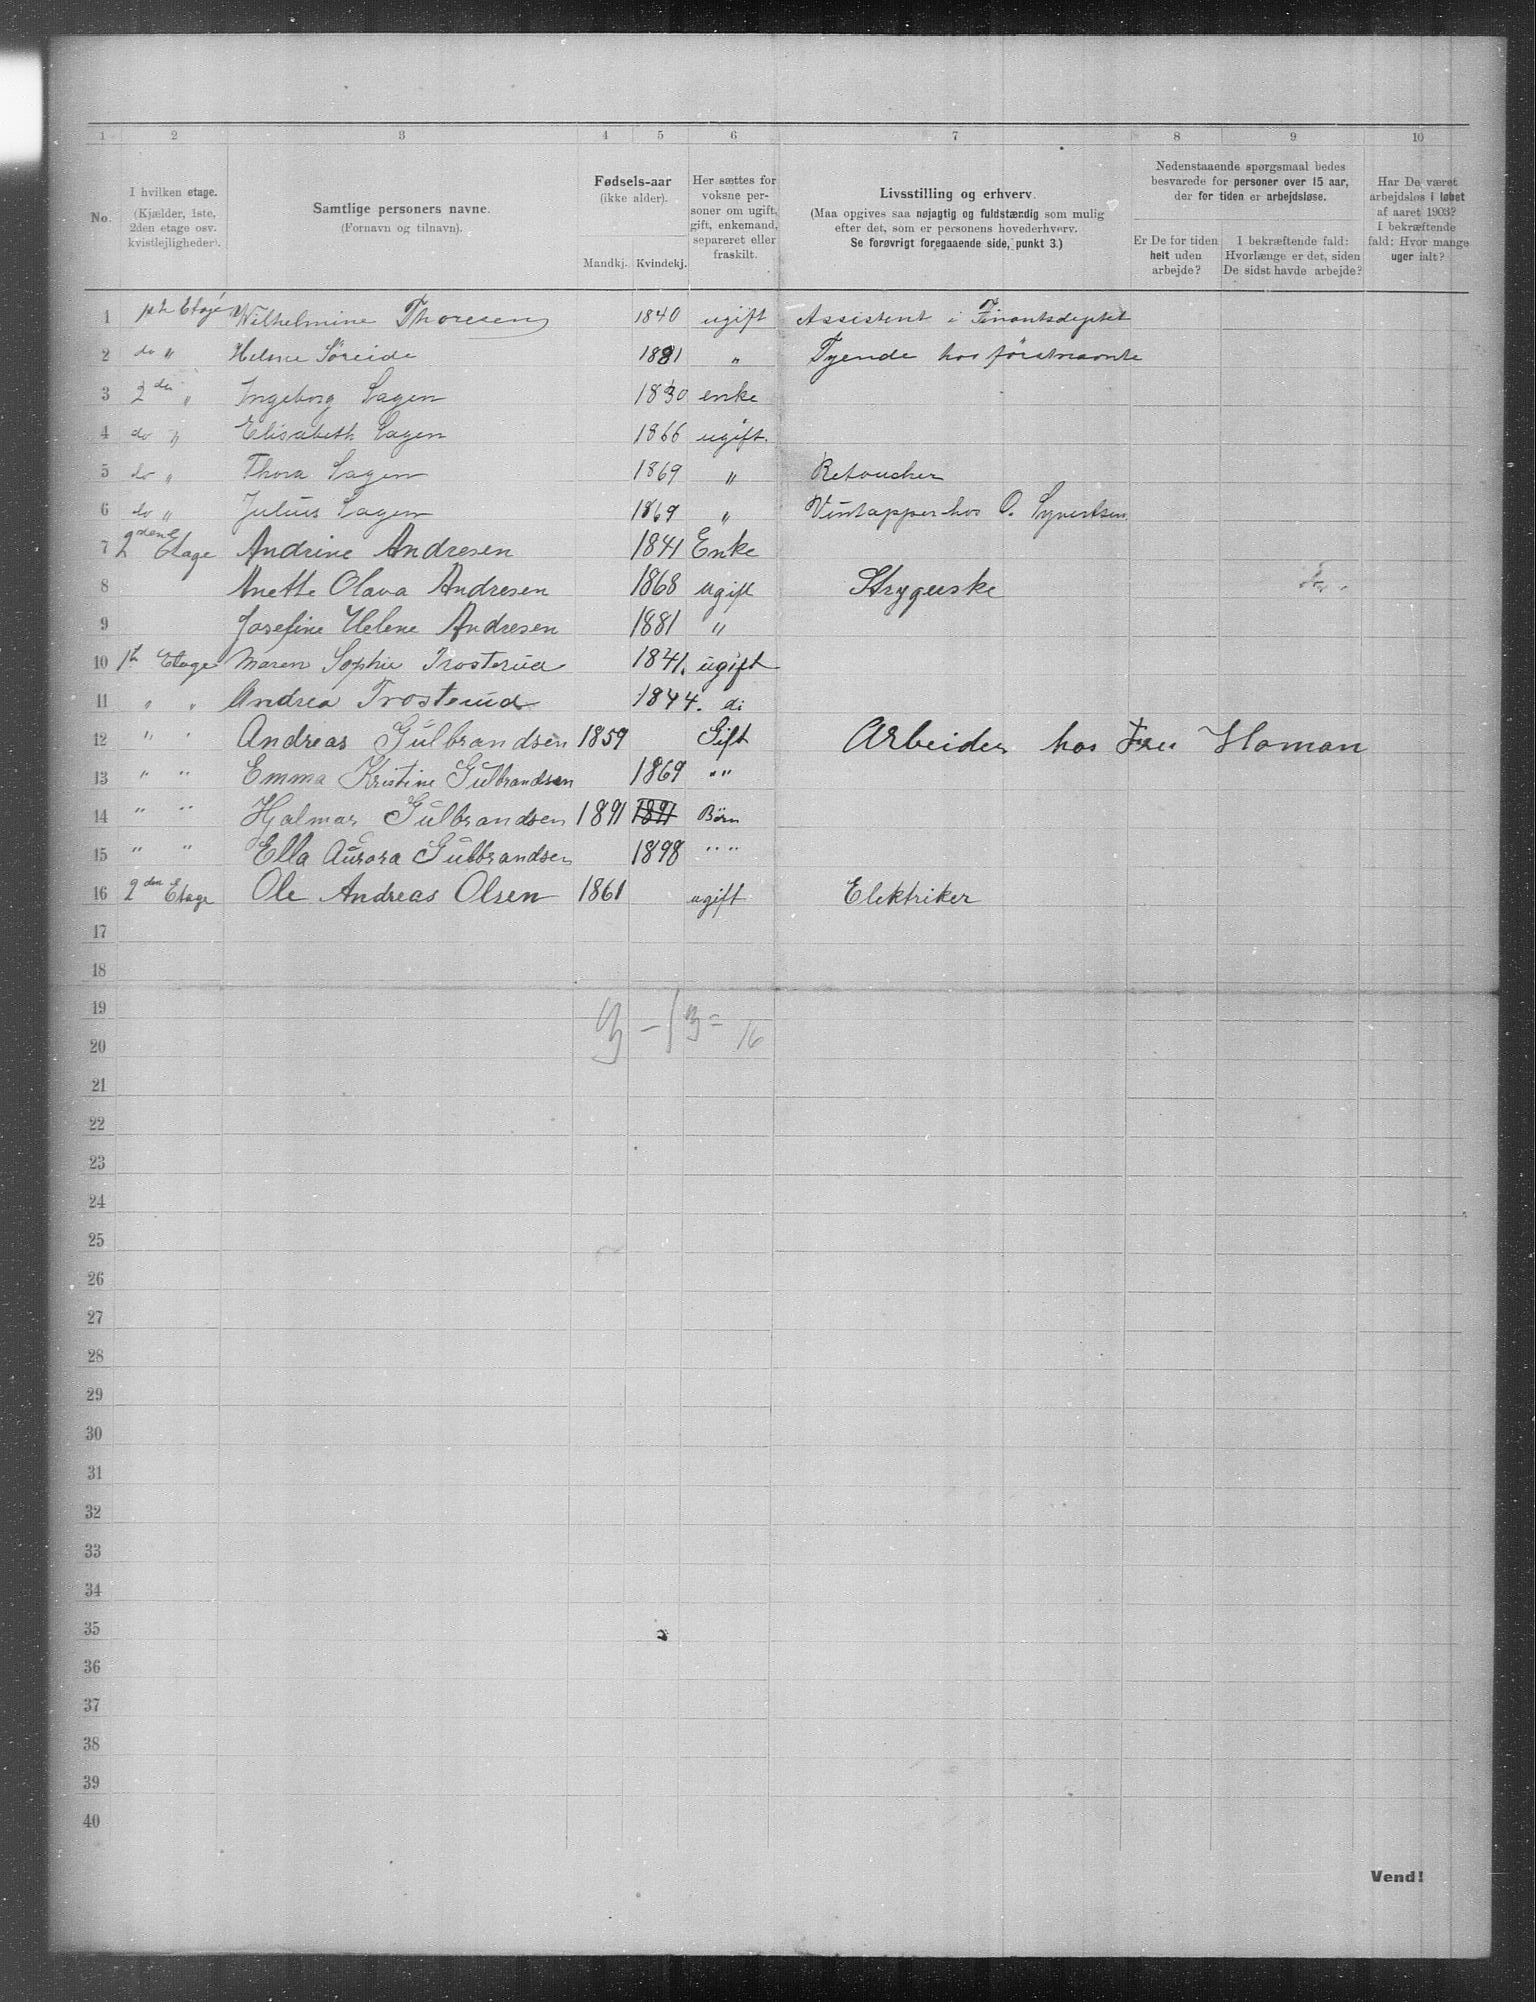 1 2 3 4 5 6 7 8 9 10
No.
I hvilken etage.
(Kjælder, 1ste,
2den etage osv.
kvistlejligheder).
Samtlige personers navne.
(Fornavn og tilnavn).
Fødsels-aar
(ikke alder).
Mandkj. Kvindekj.
Her sættes for
voksne per-
soner om ugift,
gift, enkemand,
separeret eller
fraskilt.
Livsstilling og erhverv.
(Maa opgives saa nøjagtig og fuldstændig som mulig
efter det, som er personens hovederhverv.
Se forøvrigt foregaaende side, punkt 3.)
Nedenstaaende spørgsmaal bedes
besvarede for personer over 15 aar,
der for tiden er arbejdsløse.
Er De for tiden
helt uden
arbejde?
I bekræftende fald:
Hvorlænge er det, siden
De sidst havde arbejde?
Har De været
arbejdsløs i løbet
af aaret 1903?
I bekræftende
fald: Hvor mange
uger ialt?
1 Etage Wilhelmine Thoresen 1840 ugift Assistent i Finantsdeptet
2 do " Helene Søreide 1881 " Tyende hos førstnævnte
3 2den " Ingeborg Sagen 1830 enke
4 do " Elisabeth Sagen 1866 ugift.
5 do " Thora Sagen 1869 " Retoucher
6 do " Julius Sagen 1869 " Vintapper hos O. Syvertsen
7 2den Etage Andrine Andresen 1841 Enke
8 Anette Olava Andresen 1868 ugift Strygerske
9 Josefine Helene Andresen 1881 "
10 1st Etage Maren Sophie Trosterud 1841. ugift
11 " " Andrea Trosterud 1844. do
12 " " Andreas Gulbrandsen 1859 Gift Arbeider hos Homan
13 " " Emma Kristine Gulbrandsen 1869 " "
14 " " Hjalmar Gulbrandsen 1891 1891 Børn
15 " " Ella Aurora Gulbrandsen 1898 " "
16 2den Etage Ole Andreas Olsen 1861 ugift Elektriker
17
18
19
3 – 13 = 16
20
21
22
23
24
25
26
27
28
29
30
31
32
33
34
35
36
37
38
39
40
Vend!